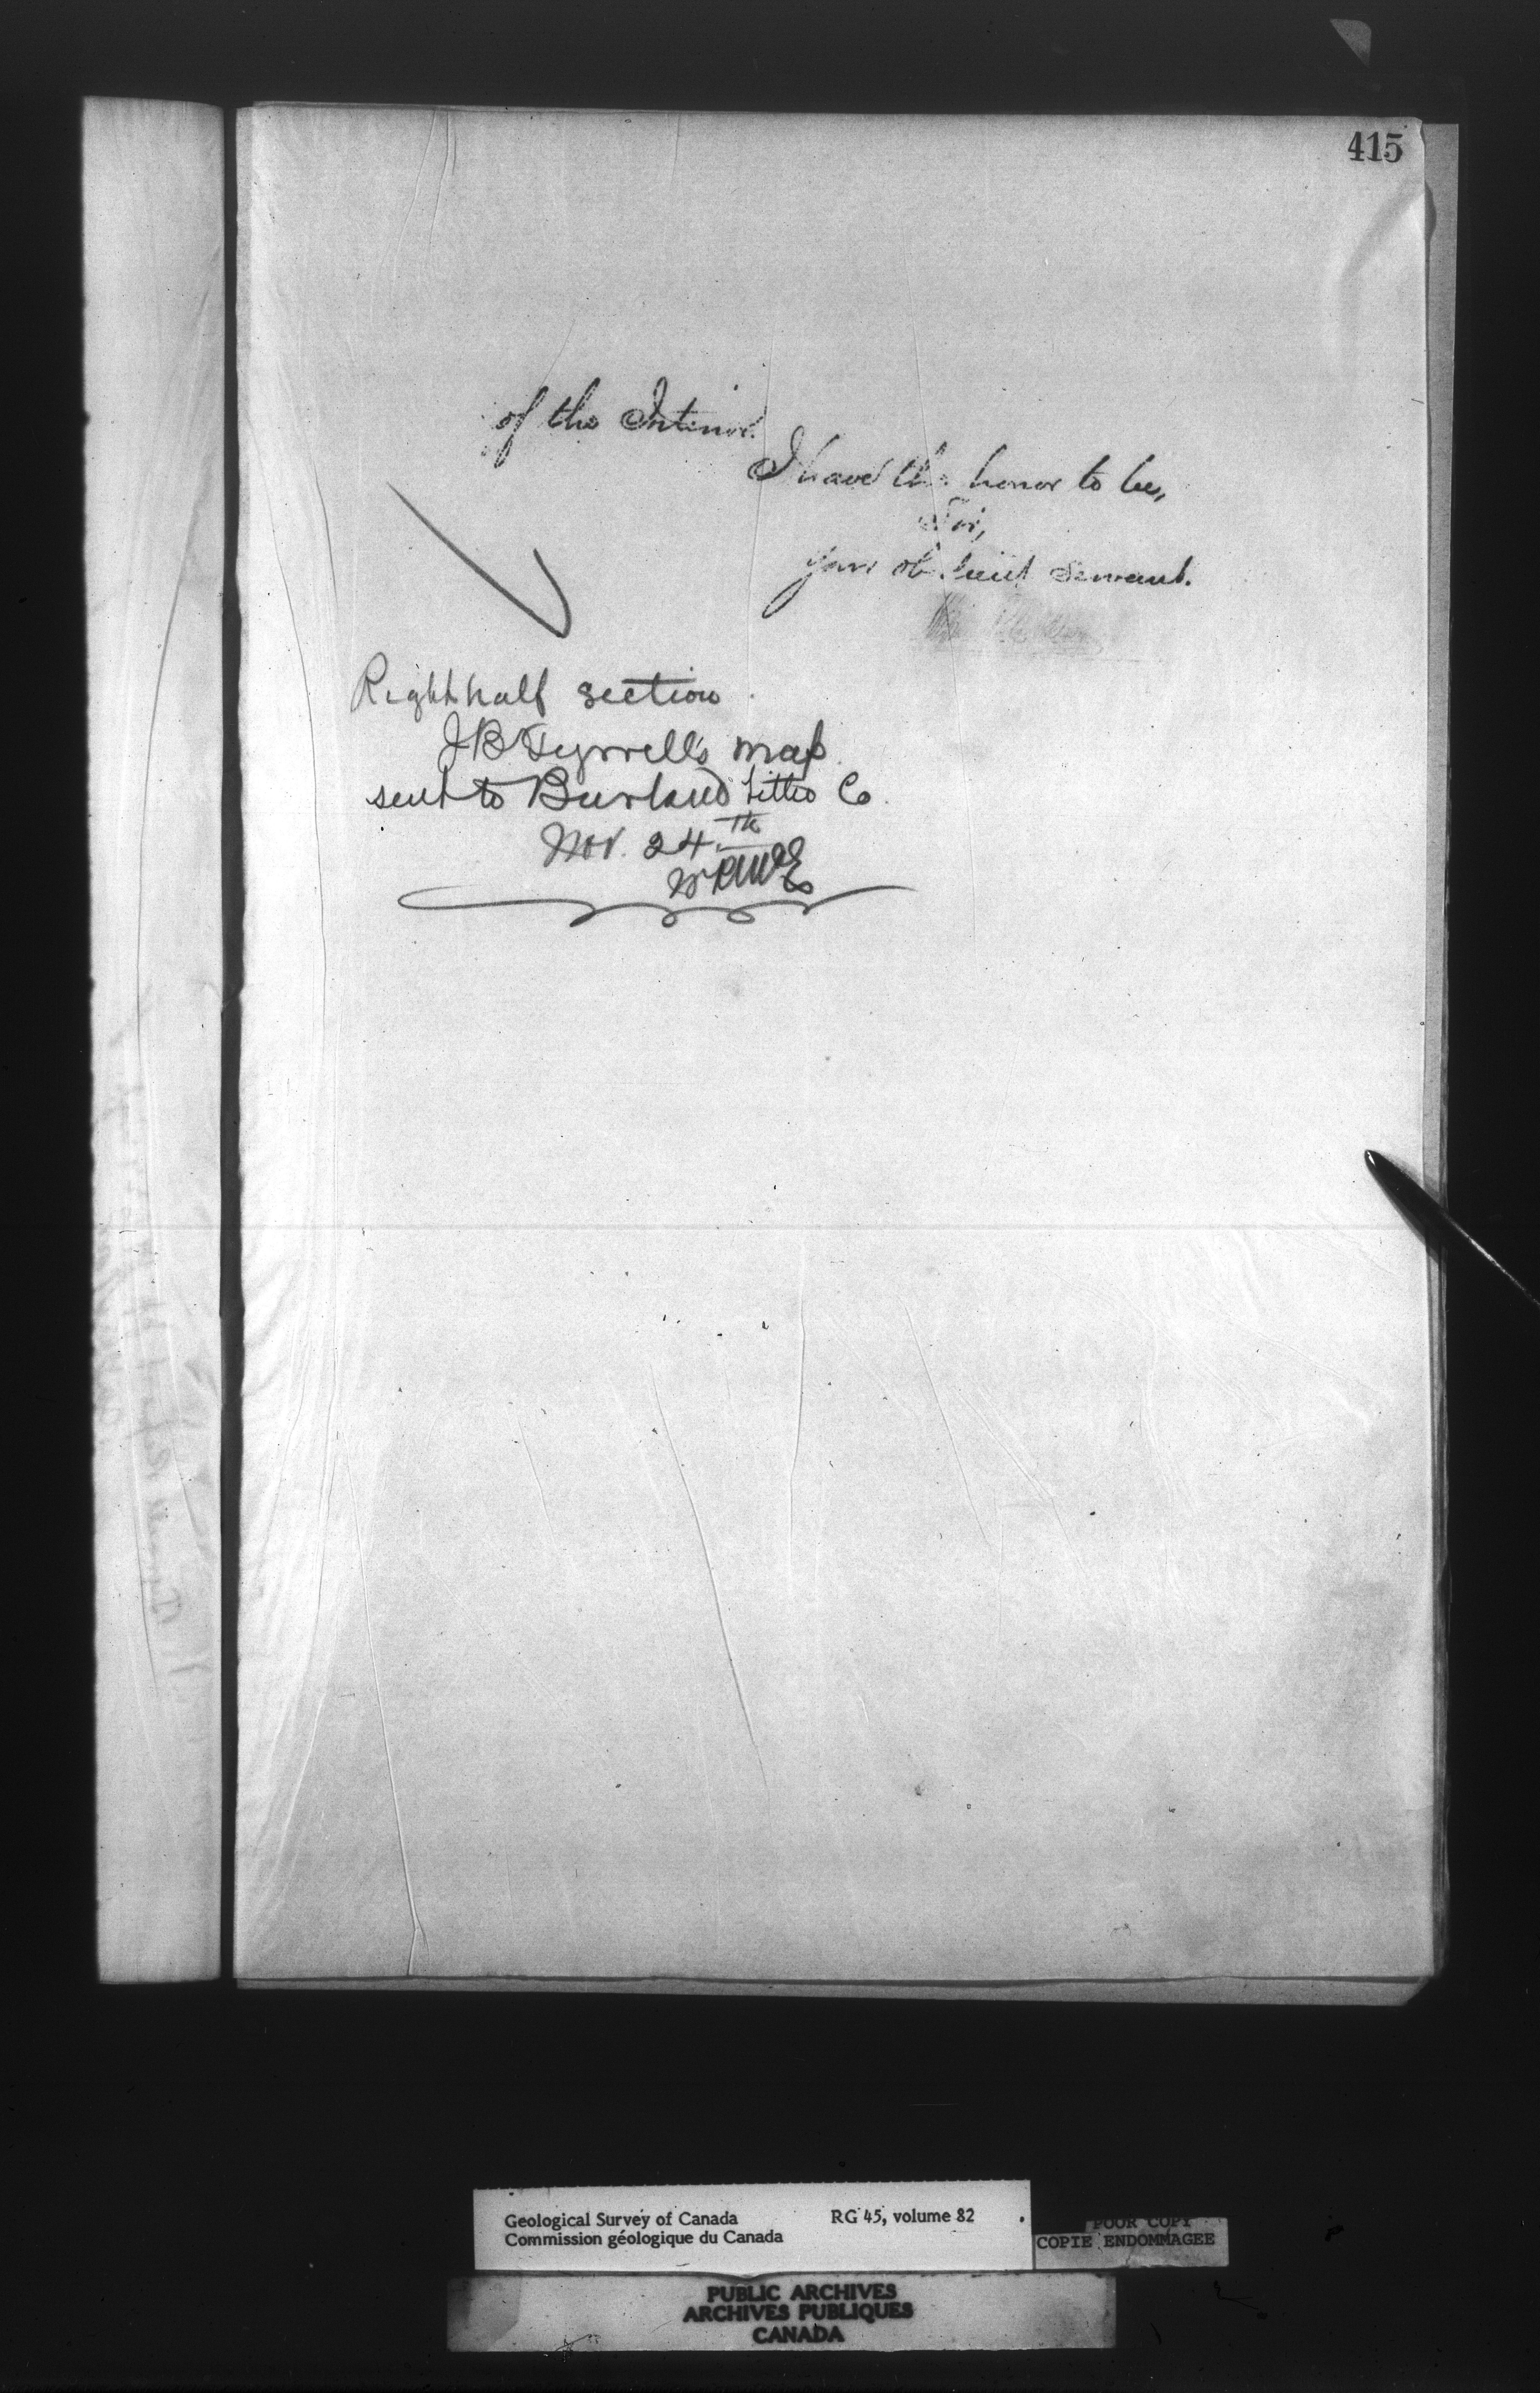 415
of the Interior.
I have the honor to be,
Sir,
your obedient Servant.
Right half section
J B Tyrrell's map
sent to Burland Litho Co.
Nov. 24.th
Geological Survey of Canada RG 45, volume 82
Commission géologique du Canada
POOR COPY
COPIE ENDOMMAGEE
PUBLIC ARCHIVES
ARCHIVES PUBLIQUES
CANADA